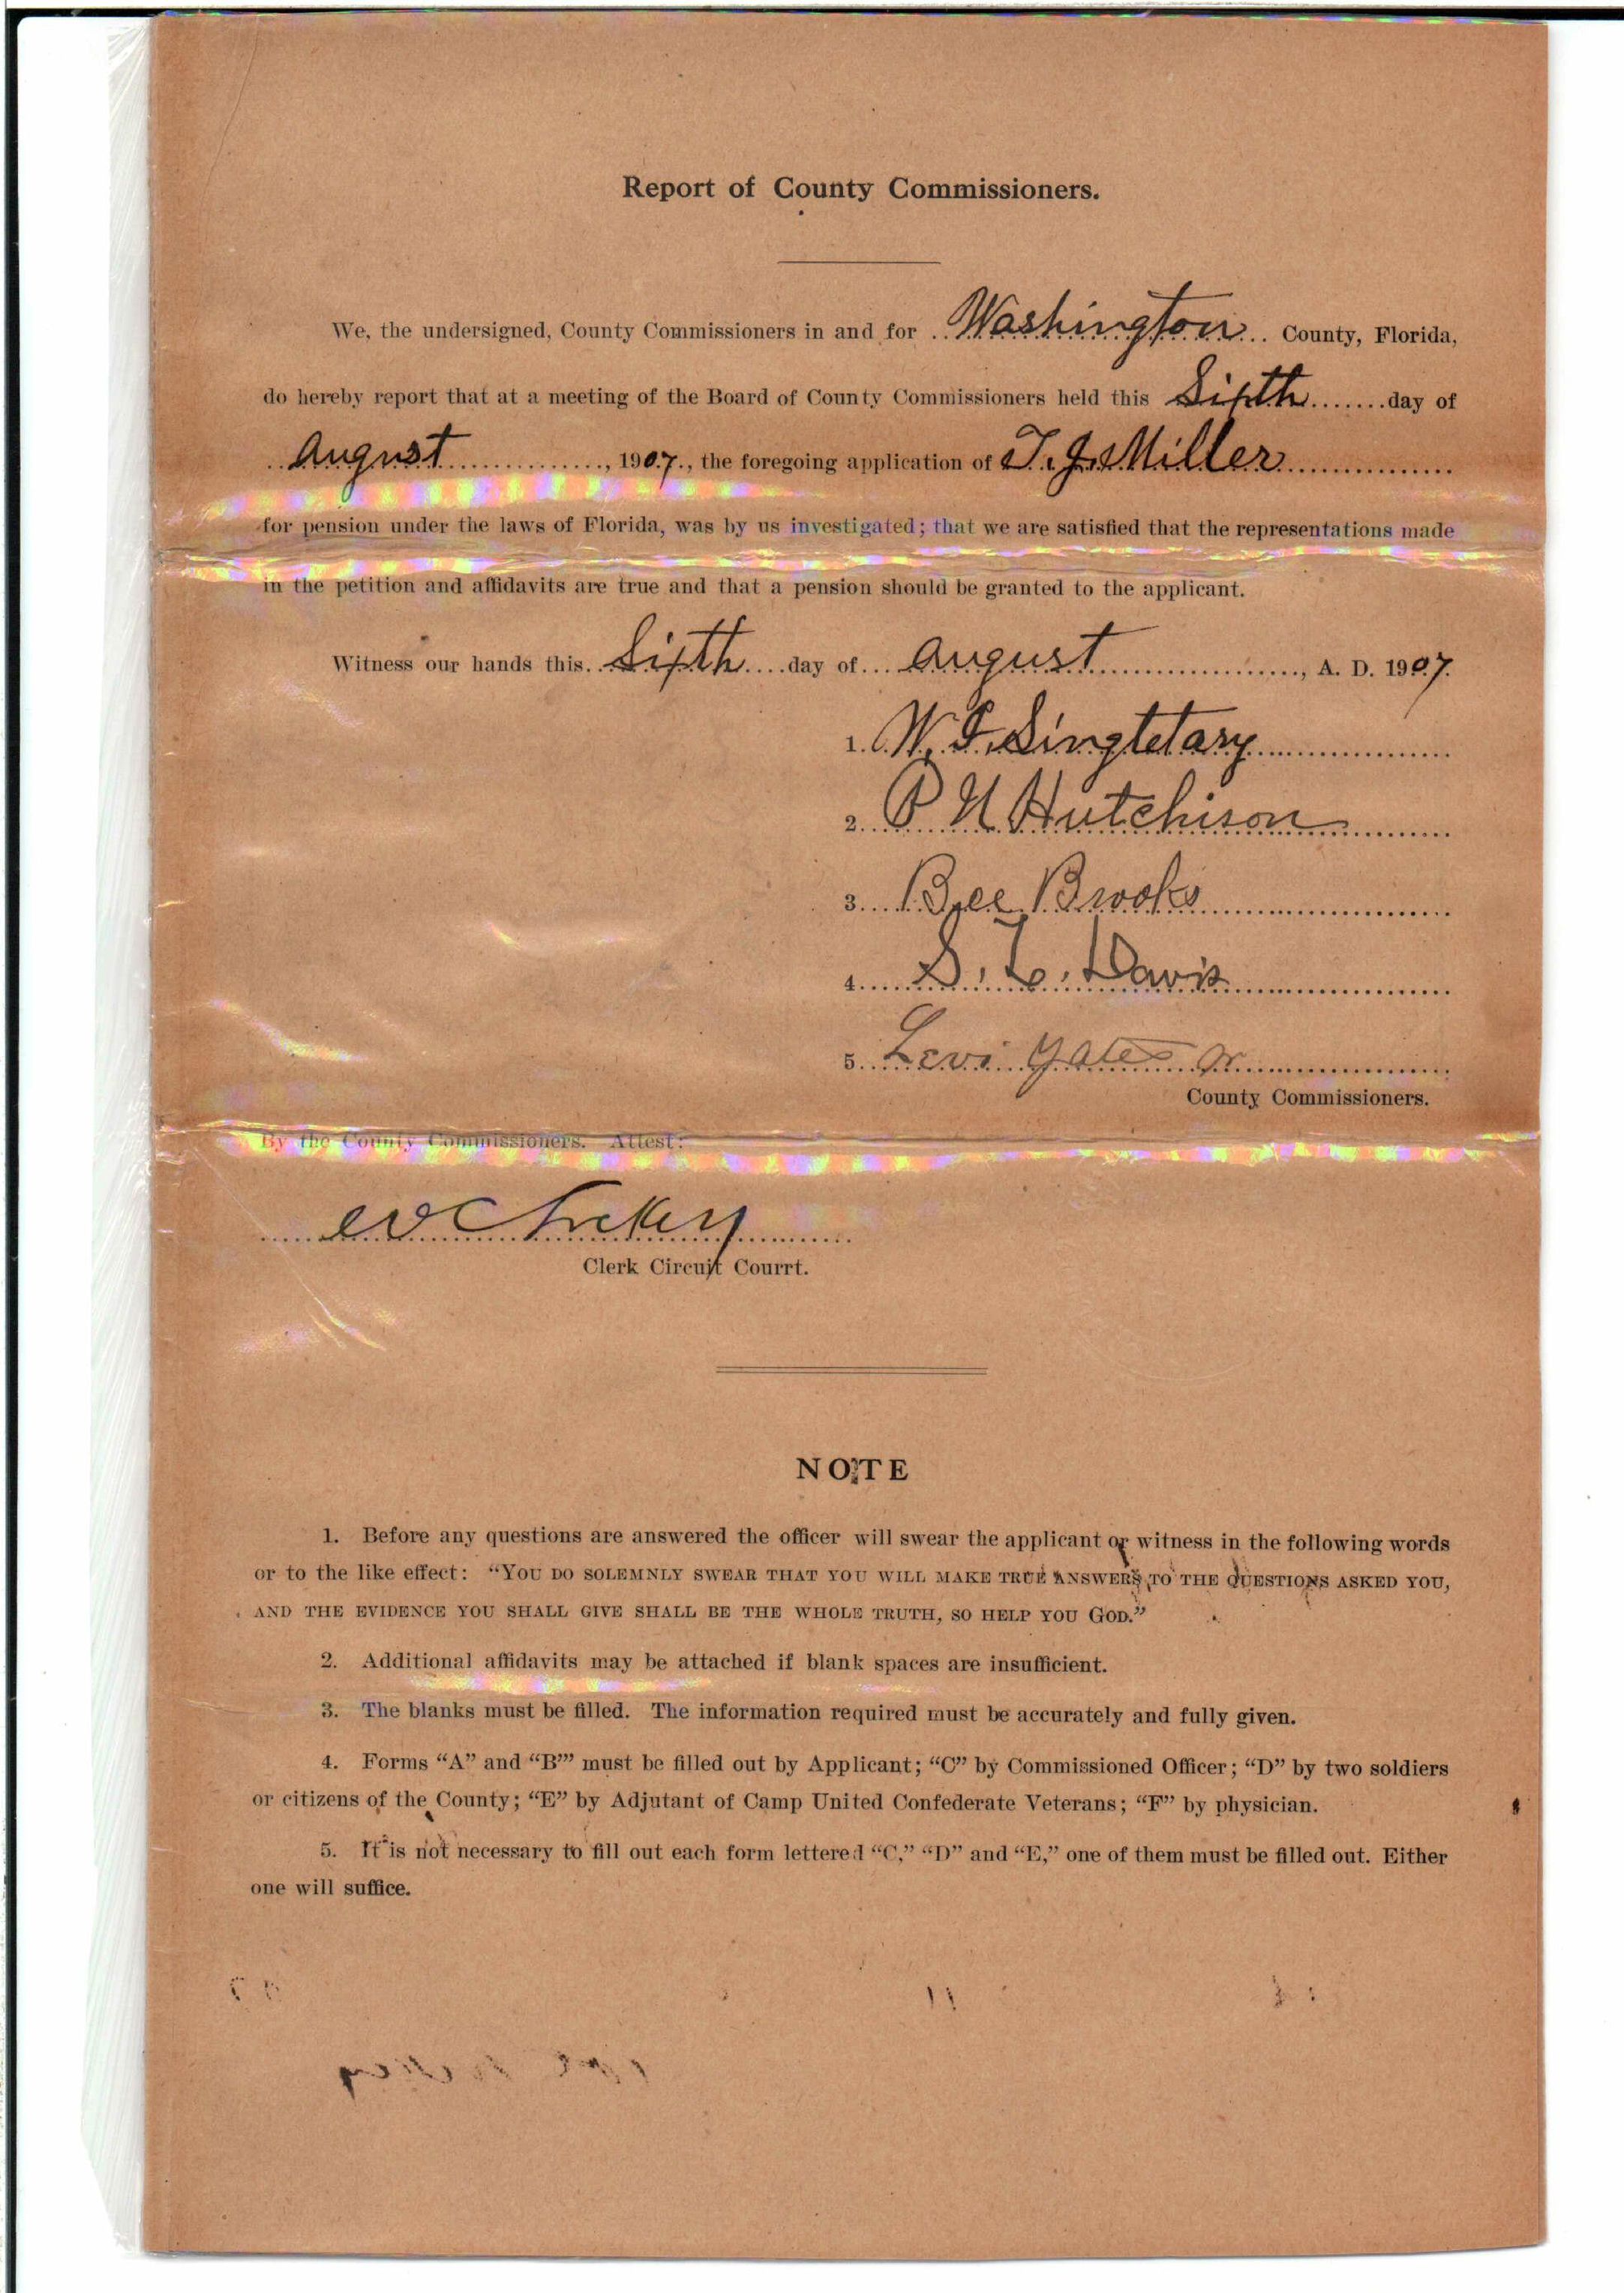 Report of County Commissioners.
We, the undersigned, County Commissioners in and for Washington County, Florida,
do hereby report that at a meeting of the Board of County Commissioners held this Sixth day of
August, 1907., the foregoing application of T. J. Miller
for pension under the laws of Florida, was by us investigated; that we are satisfied that the representations made
in the petition and affidavits are true and that a pension should be granted to the applicant.
Witness our hands this Sixth day of August, A. D. 1907.
1. Singletary
2. Hutchison
3. Bee Brooks
4. S. L. Davis
5. Levi Yates
County Commissioners.
By the County Commissioners. Attest:
Clerk Circuit Courrt.
NOTE
1. Before any questions are answered the officer will swear the applicant or witness in the following words
or to the like effect: “YOU DO SOLEMNLY SWEAR THAT YOU WILL MAKE TRUE ANSWERS TO THE QUESTIONS ASKED YOU,
AND THE EVIDENCE YOU SHALL GIVE SHALL BE THE WHOLE TRUTH, SO HELP YOU GOD.”
2. Additional affidavits may be attached if blank spaces are insufficient.
3. The blanks must be filled. The information required must be accurately and fully given.
4. Forms “A” and “B’” must be filled out by Applicant; “C” by Commissioned Officer; “D” by two soldiers
or citizens of the County; “E” by Adjutant of Camp United Confederate Veterans; “F” by physician.
5. It is not necessary to fill out each form lettered “C,” “D” and “E,” one of them must be filled out. Either
one will suffice.